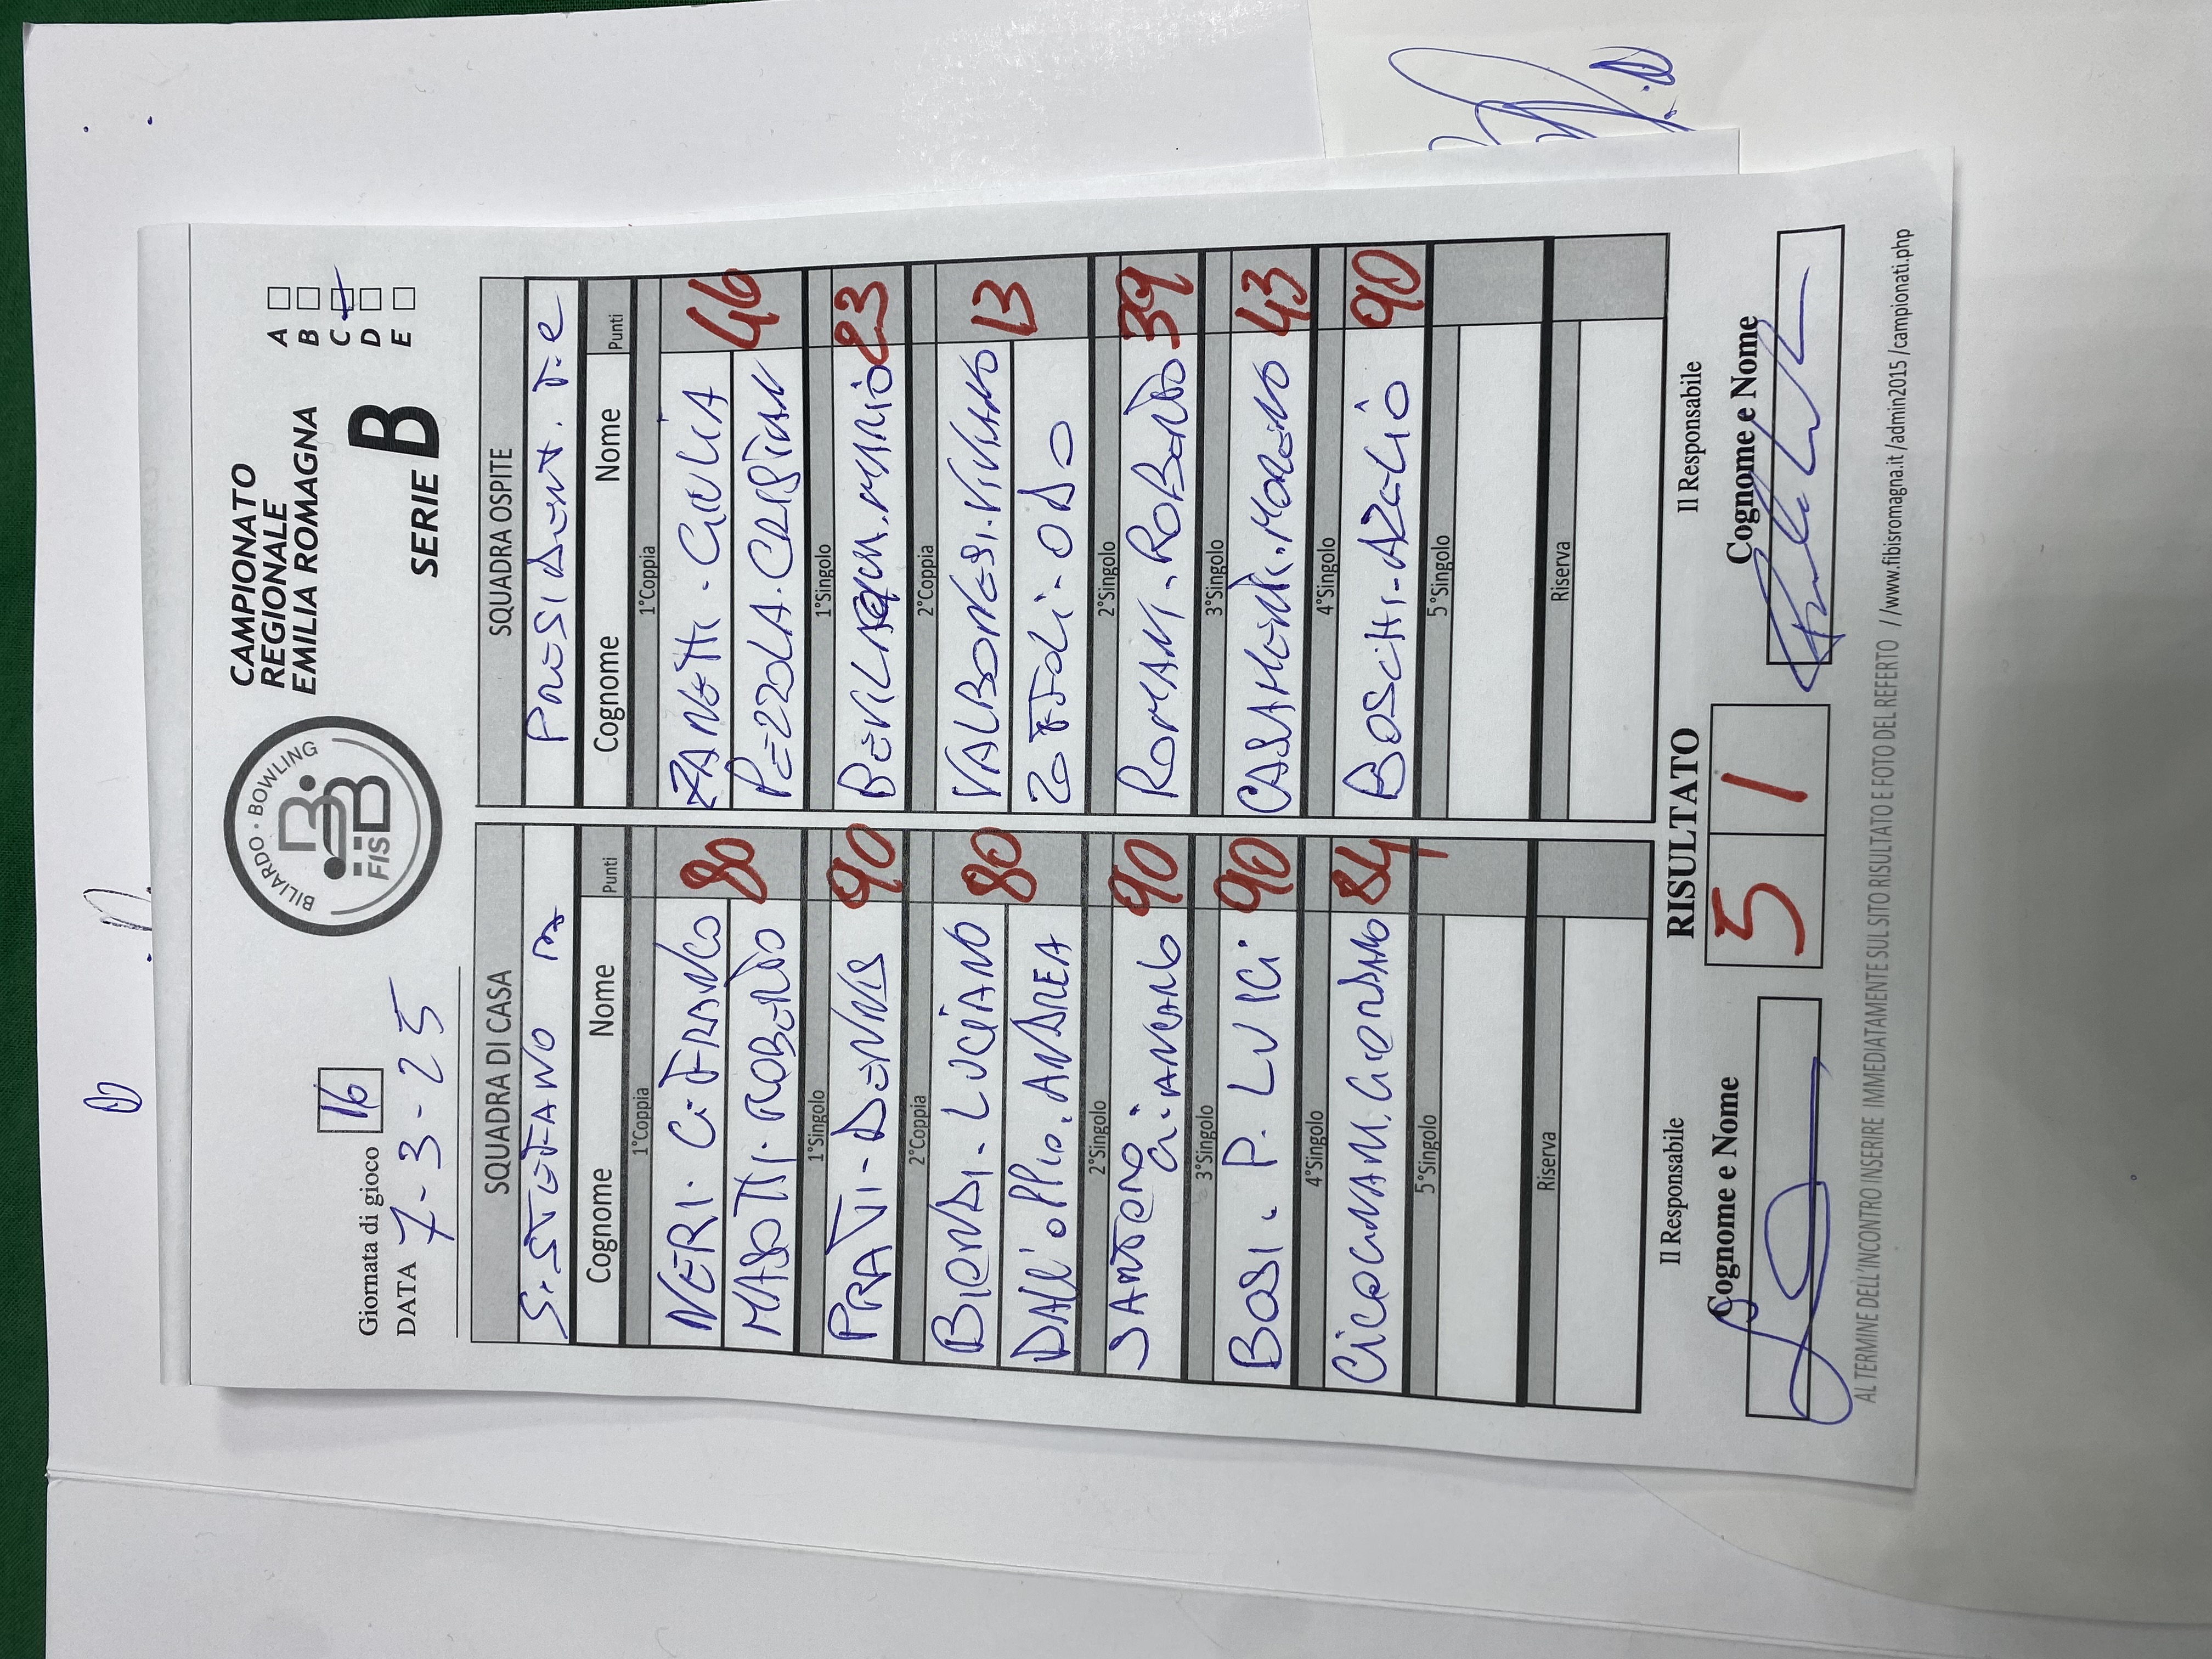 Giornata di gioco 16
DATA 7-3-25
BILIARDO · BOWLING
FISBB
CAMPIONATO
REGIONALE
EMILIA ROMAGNA
SERIE B
A
B
C
D
E
SQUADRA DI CASA
S. STEFANO
Cognome Nome Punti
1°Coppia
NERI. G. FRANCO 80
MASOTTI. ROBERTO
1°Singolo
PRATI - DENNIS 90
2°Coppia
BIONDI - LUCIANO 80
DALL'OPPIO. ANDREA
2°Singolo
GIANCARLO 90
3°Singolo
BOSI. P. LUIGI 90
4°Singolo
CICOGNANI. GIORDANO 84
5°Singolo
Riserva
SQUADRA OSPITE
PRESIDENT. T.E
Cognome Nome Punti
1°Coppia
ZANETTI. GIULIA 46
PEZZOLA. CRISTIAN
1°Singolo
BEVILACQUA. MARIO 23
2°Coppia
VALBONESI. VIVIANO 13
ZOFFOLI. ODO
2°Singolo
ROMANI. ROBERTO 39
3°Singolo
CASAMENTI. MORENO 43
4°Singolo
BOSCHI. AZELIO 90
5°Singolo
Riserva
Il Responsabile
Cognome e Nome
RISULTATO
5 1
Il Responsabile
Cognome e Nome
AL TERMINE DELL'INCONTRO INSERIRE IMMEDIATAMENTE SUL SITO RISULTATO E FOTO DEL REFERTO //www.fibisromagna.it /admin2015 /campionati.php